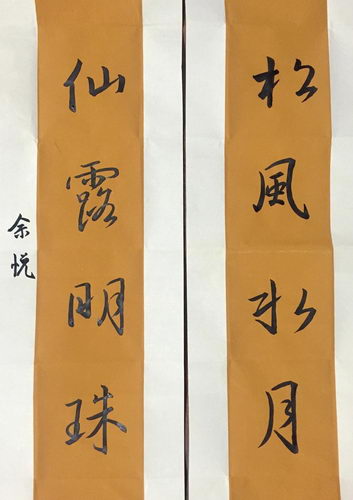 松風水月
仙露明珠
余悦